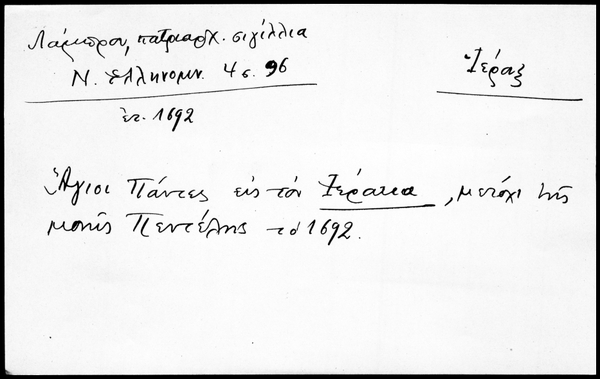 Λάμπρου, πατριαρχ. σιγίλλια
Ν. Ἑλληνομν. 4 σ. 96
Ἱέραξ
ἔτ. 1692
Ἅγιοι Πάντες εἰς τὸν Ἱέρακα, μετόχι τῆς
μονῆς Πεντέλης τὸ 1692.